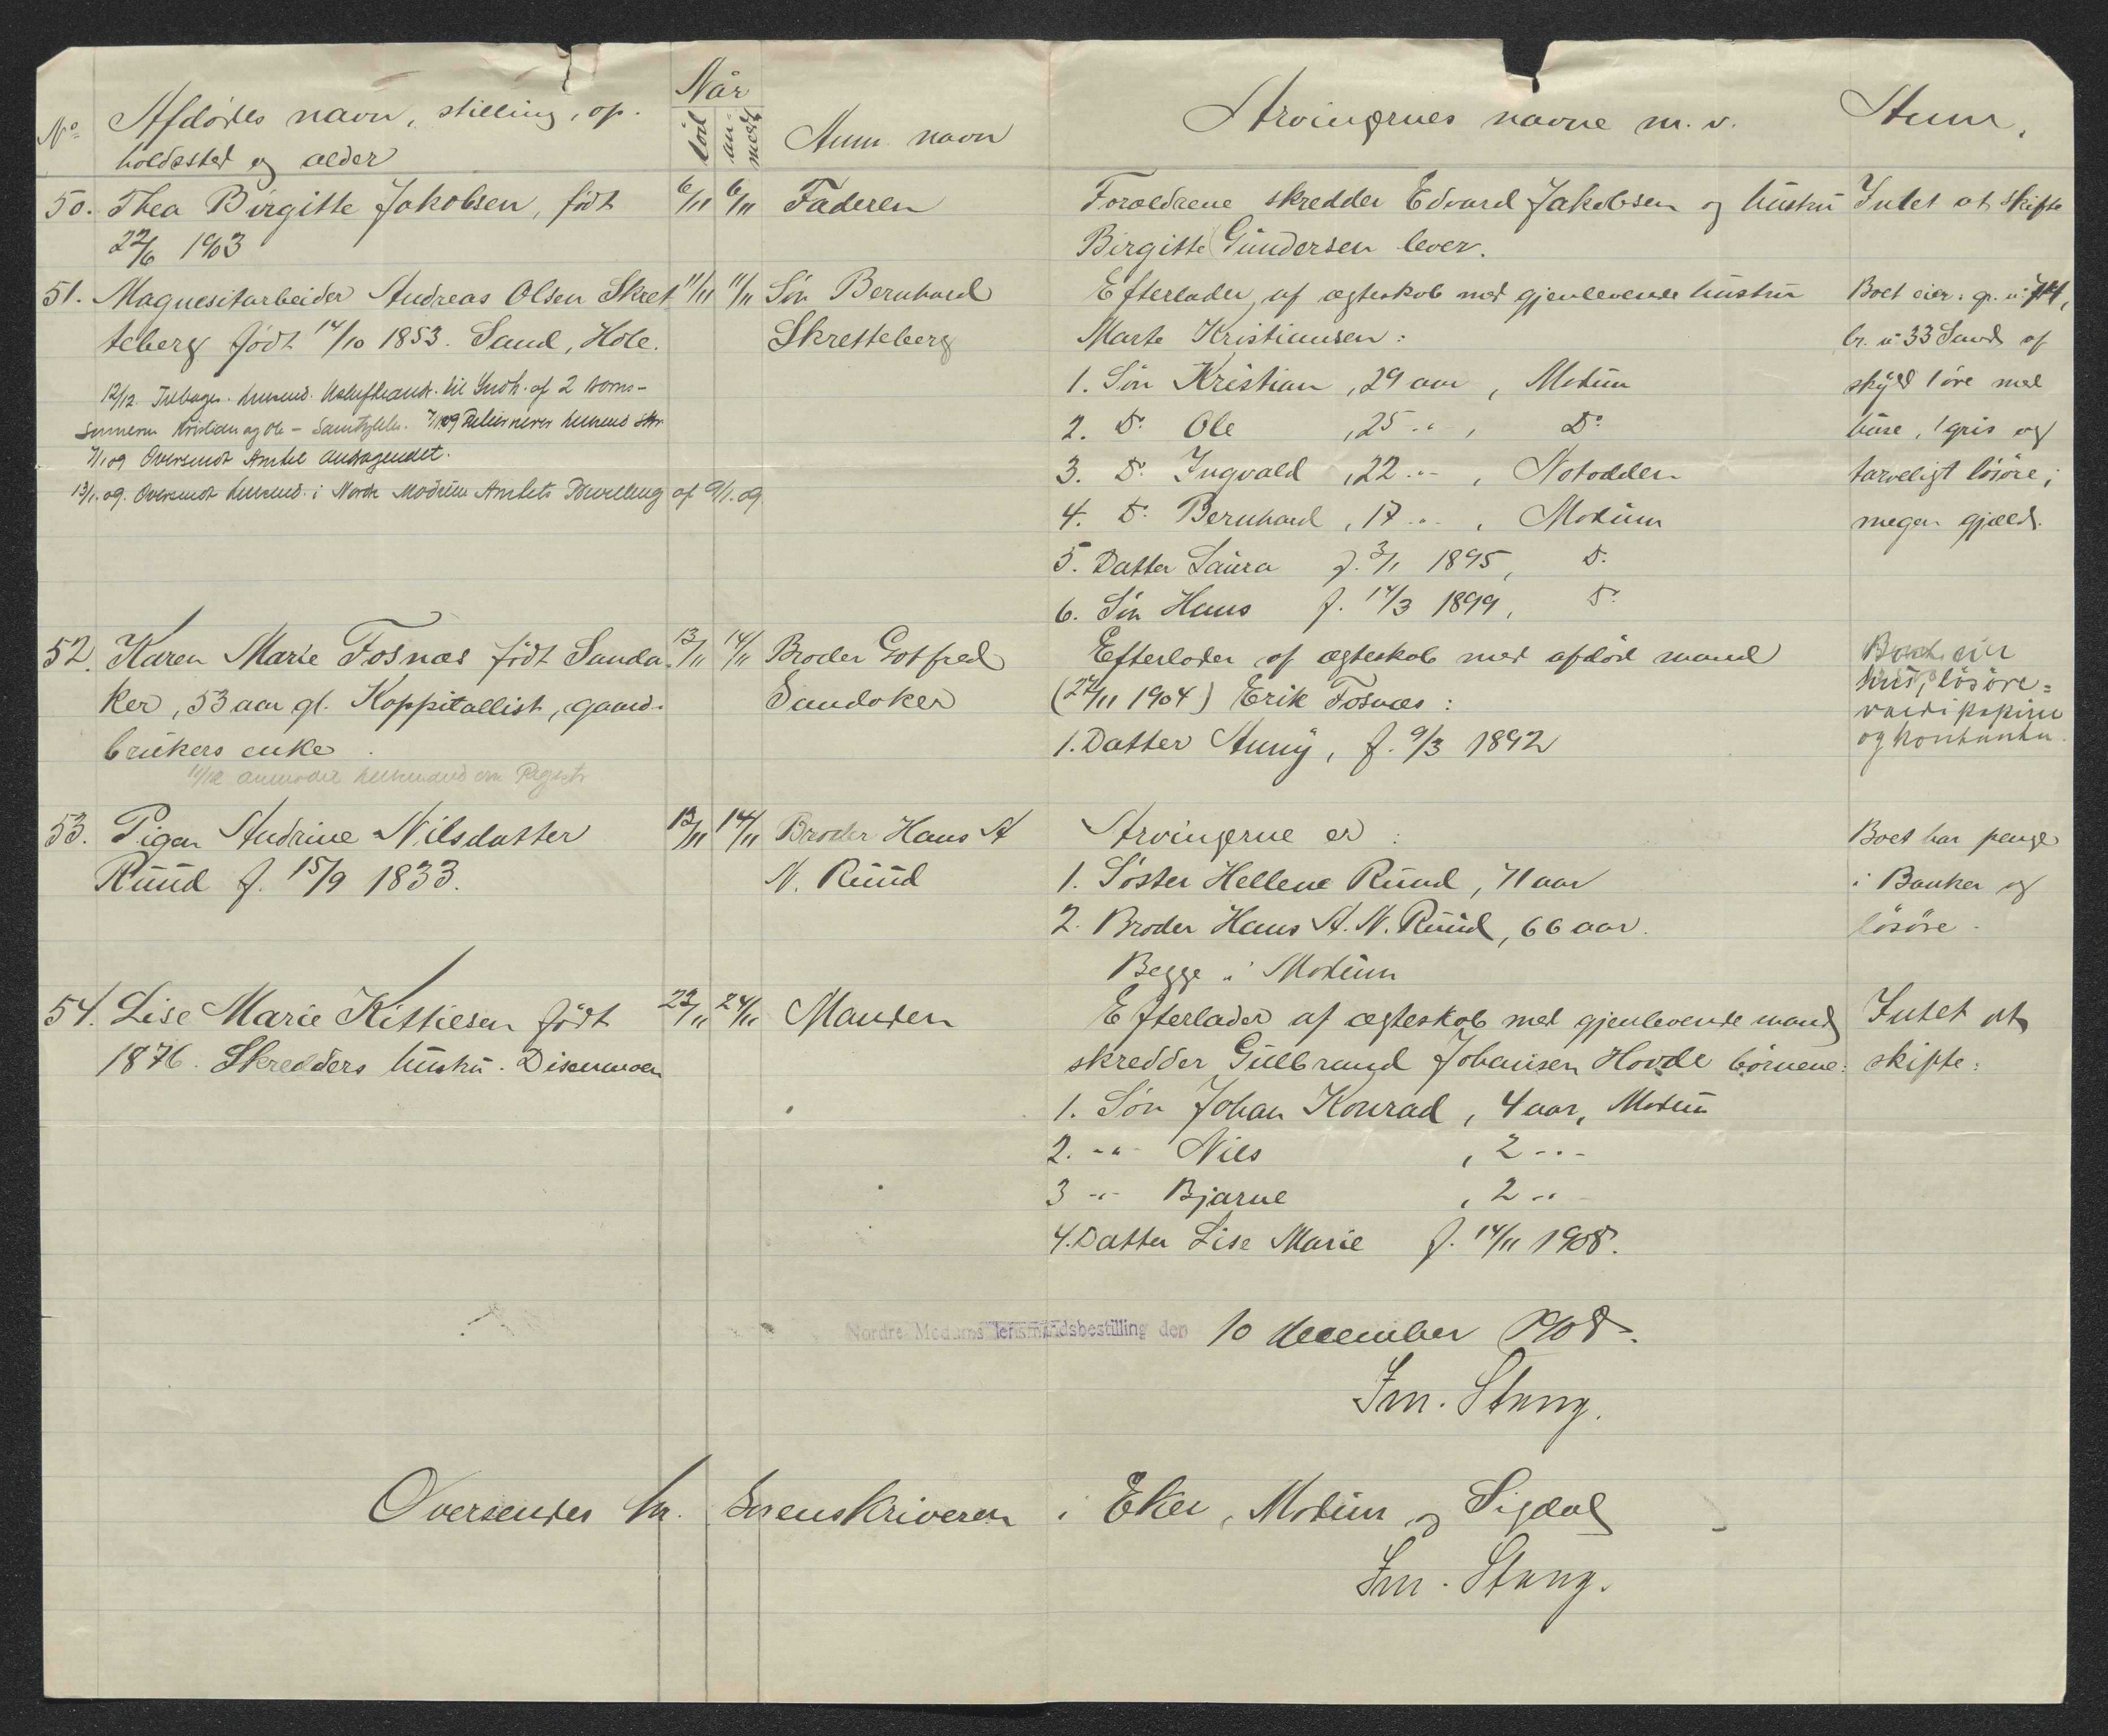 Når
No Afdødes navn, stilling, op-
holdssted og alder
død
an-
meldt
Anm. navn
Arvingernes navne m.v.
Anm.
50. Thea Birgitte Jakobsen, født
22/6 1903
6/11 6/11 Faderen
Forældrene skredder Edvard Jakobsen og hustru
Birgitte Gundersen lever.
Intet at skifte
51. Magnesitarbeider Andreas Olsen Skret-
teberg født 14/10 1853. Sand, Hole.
12/12. Tilbage lensmd. til Indh. af 2 
sønnerne Kristian og Ole - Samtykke. 7/1 09
7/1 09 Oversendt Amtet andragendet.
13/1. 09. Oversendt lensmd. i Nordre Modum Amtets Bevilling af 9/1. 09.
11/11 11/11 Søn Bernhard
Skretteberg
Efterlader af ægteskab med gjenlevende hustru
Marte Kristiansen:
1. Søn Kristian, 29 aar, Modum
2. Do Ole, 25 " , Do
3. Do Ingvald, 22 " , Notodden
4. Do Bernhard, 17 " , Modum
5. Datter Laura f. 3/1 1895, Do
6. Søn Hans f. 14/3 1899, Do
Boet eier: gr. n
br. n 33 Sand af
skyld 1 øre med
huse, 1 gris og
tarveligt løsøre;
megen gjæld.
52. Karen Marie Fosnæs født Sanda-
ker, 53 aar gl. Koppitallist, gaard-
brukers enke.
11/12 anmodet lensmand om Registr.
13/11 14/11 Broder Gotfred
Sandaker
Efterlader af ægteskab med afdød mand
(27/11 1904) Erik Fosnæs:
1. Datter Anny, f. 9/3 1892
Boet eier
hus, løsøre=
værdipapirer
og kontanter.
53. Pigen Andrine Nilsdatter
Ruud f. 15/9 1833.
13/11 14/11 Broder Hans A
N. Ruud
Arvingerne er:
1. Søster Hellene Ruud, 71 aar
2. Broder Hans A. N. Ruud, 66 aar.
Begge i Modum
Boet har penge
i Banker og
løsøre.
54. Lise Marie Kittilsen født
1876. Skredders hustru. Disenmoen
23/11 24/11 Manden
Efterlader af ægteskab med gjenlevende mand
skredder Gulbrand Johansen Hovde børnene:
1. Søn Johan Konrad, 4 aar, Modum
2. -"- Nils, 2 -"-
3 -"- Bjarne, 2 -"-
4. Datter Lise Marie f. 14/11 1908.
Intet at
skifte.
Nordre Modums lensmandsbestilling den 10 december 1908.
Im. Stang.
Oversendes hr. Sorenskriveren i Eker, Modum og Sigdal
Im. Stang.